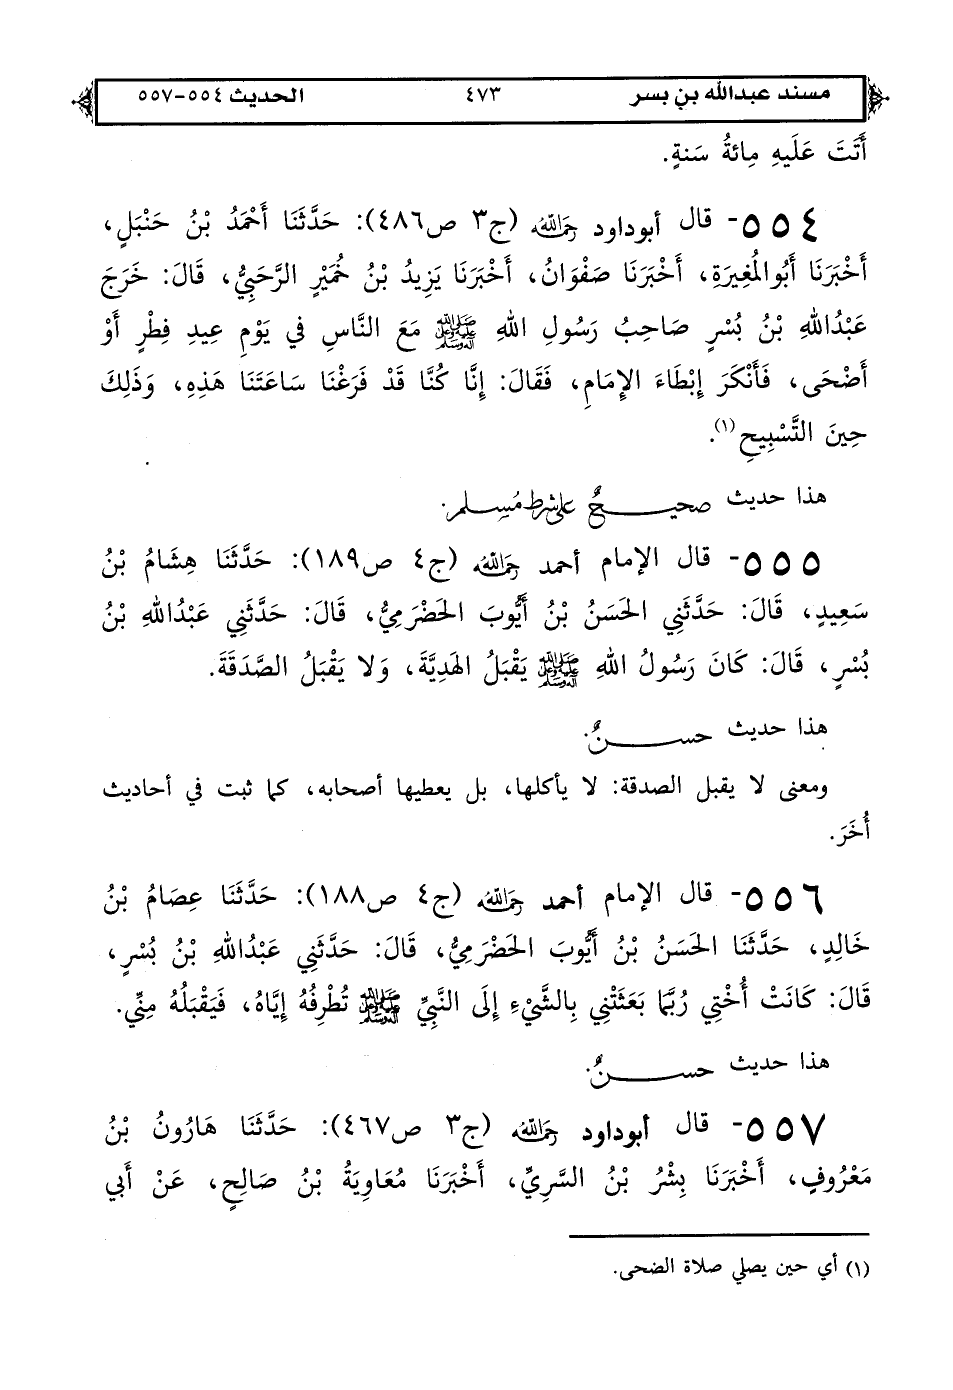 مسند عبدالله بن بسر ٤٧٣ الحديث ٥٥٤-٥٥٧
أَتَتَ عَلَيهِ مِائةُ سَنةٍ.
٥٥٤- قال أبوداود رَحِمَهُ اللهُ (ج٣ ص٤٨٦): حَدَّثَنَا أَحْمَدُ بْنُ حَنْبَلٍ،
أَخْبَرَنَا أَبُوالْمُغِيرَةِ، أَخْبَرَنَا صَفْوَانُ، أَخْبَرَنَا يَزِيدُ بْنُ خُمَيْرٍ الرَّحَبِيُّ، قَالَ: خَرَجَ
عَبْدُاللهِ بْنُ بُسْرٍ صَاحِبُ رَسُولِ اللهِ ﷺ مَعَ النَّاسِ فِي يَوْمِ عِيدِ فِطْرٍ أَوْ
أَضْحَى، فَأَنْكَرَ إِبْطَاءَ الإِمَامِ، فَقَالَ: إِنَّا كُنَّا قَدْ فَرَغْنَا سَاعَتَنَا هَذِهِ، وَذَلِكَ
حِينَ التَّسْبِيحِ(١).
هذا حديث صحيحٌ على شرط مُسلم.
٥٥٥- قال الإمام أحمد رَحِمَهُ اللهُ (ج٤ ص١٨٩): حَدَّثَنَا هِشَامُ بْنُ
سَعِيدٍ، قَالَ: حَدَّثَنِي الحَسَنُ بْنُ أَيُّوبَ الحَضْرَمِيُّ، قَالَ: حَدَّثَنِي عَبْدُاللهِ بْنُ
بُسْرٍ، قَالَ: كَانَ رَسُولُ اللهِ ﷺ يَقْبَلُ الهَدِيَّةَ، وَلا يَقْبَلُ الصَّدَقَةَ.
هذا حديث حسنٌ.
ومعنى لا يقبل الصدقة: لا يأكلها، بل يعطيها أصحابه، كما ثبت في أحاديث
أُخَرَ.
٥٥٦- قال الإمام أحمد رَحِمَهُ اللهُ (ج٤ ص١٨٨): حَدَّثَنَا عِصَامُ بْنُ
خَالِدٍ، حَدَّثَنَا الحَسَنُ بْنُ أَيُّوبَ الحَضْرَمِيُّ، قَالَ: حَدَّثَنِي عَبْدُاللهِ بْنُ بُسْرٍ،
قَالَ: كَانَتْ أُخْتِي رُبَّمَا بَعَثَتْنِي بِالشَّيْءِ إِلَى النَّبِيِّ ﷺ تُطْرِفُهُ إِيَّاهُ، فَيَقْبَلُهُ مِنِّي.
هذا حديث حسنٌ.
٥٥٧- قال أبوداود رَحِمَهُ اللهُ (ج٣ ص٤٦٧): حَدَّثَنَا هَارُونُ بْنُ
مَعْرُوفٍ، أَخْبَرَنَا بِشْرُ بْنُ السَّرِيِّ، أَخْبَرَنَا مُعَاوِيَةُ بْنُ صَالِحٍ، عَنْ أَبِي
(١) أي حين يصلي صلاة الضحى.